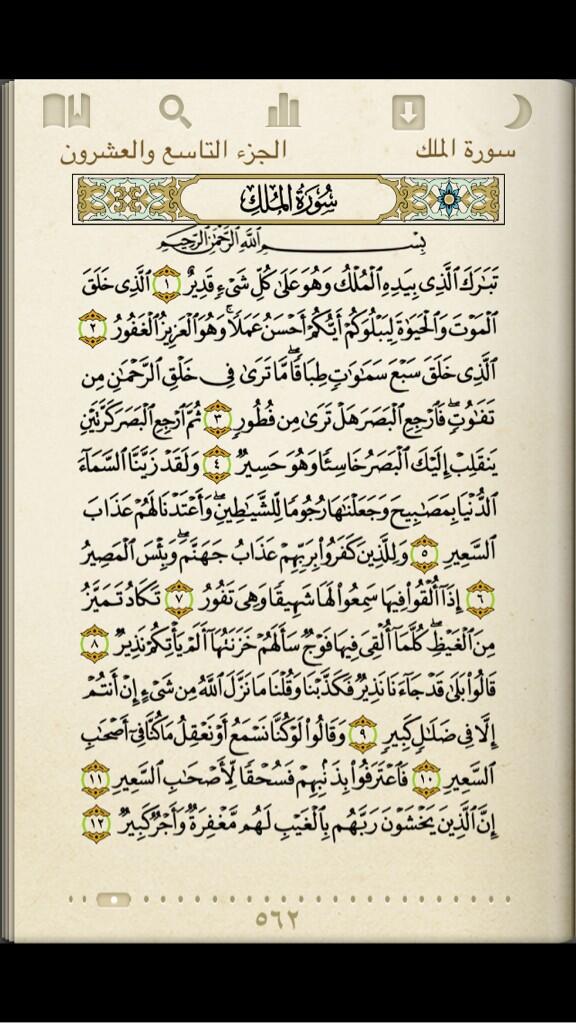 سورة الملك الجزء التاسع والعشرون
سُورَةُ المُلْكِ
بِسْمِ اللَّهِ الرَّحْمَٰنِ الرَّحِيمِ
تَبَٰرَكَ ٱلَّذِى بِيَدِهِ ٱلْمُلْكُ وَهُوَ عَلَىٰ كُلِّ شَىْءٍ قَدِيرٌ ١ ٱلَّذِى خَلَقَ
ٱلْمَوْتَ وَٱلْحَيَوٰةَ لِيَبْلُوَكُمْ أَيُّكُمْ أَحْسَنُ عَمَلًا ۚ وَهُوَ ٱلْعَزِيزُ ٱلْغَفُورُ ٢
ٱلَّذِى خَلَقَ سَبْعَ سَمَٰوَٰتٍ طِبَاقًا ۖ مَّا تَرَىٰ فِى خَلْقِ ٱلرَّحْمَٰنِ مِن
تَفَٰوُتٍ ۖ فَٱرْجِعِ ٱلْبَصَرَ هَلْ تَرَىٰ مِن فُطُورٍ ٣ ثُمَّ ٱرْجِعِ ٱلْبَصَرَ كَرَّتَيْنِ
يَنقَلِبْ إِلَيْكَ ٱلْبَصَرُ خَاسِئًا وَهُوَ حَسِيرٌ ٤ وَلَقَدْ زَيَّنَّا ٱلسَّمَآءَ
ٱلدُّنْيَا بِمَصَٰبِيحَ وَجَعَلْنَٰهَا رُجُومًا لِّلشَّيَٰطِينِ ۖ وَأَعْتَدْنَا لَهُمْ عَذَابَ
ٱلسَّعِيرِ ٥ وَلِلَّذِينَ كَفَرُوا۟ بِرَبِّهِمْ عَذَابُ جَهَنَّمَ ۖ وَبِئْسَ ٱلْمَصِيرُ
٦ إِذَآ أُلْقُوا۟ فِيهَا سَمِعُوا۟ لَهَا شَهِيقًا وَهِىَ تَفُورُ ٧ تَكَادُ تَمَيَّزُ
مِنَ ٱلْغَيْظِ ۖ كُلَّمَآ أُلْقِىَ فِيهَا فَوْجٌ سَأَلَهُمْ خَزَنَتُهَآ أَلَمْ يَأْتِكُمْ نَذِيرٌ ٨
قَالُوا۟ بَلَىٰ قَدْ جَآءَنَا نَذِيرٌ فَكَذَّبْنَا وَقُلْنَا مَا نَزَّلَ ٱللَّهُ مِن شَىْءٍ إِنْ أَنتُمْ
إِلَّا فِى ضَلَٰلٍ كَبِيرٍ ٩ وَقَالُوا۟ لَوْ كُنَّا نَسْمَعُ أَوْ نَعْقِلُ مَا كُنَّا فِىٓ أَصْحَٰبِ
ٱلسَّعِيرِ ١٠ فَٱعْتَرَفُوا۟ بِذَنۢبِهِمْ فَسُحْقًا لِّأَصْحَٰبِ ٱلسَّعِيرِ ١١
إِنَّ ٱلَّذِينَ يَخْشَوْنَ رَبَّهُم بِٱلْغَيْبِ لَهُم مَّغْفِرَةٌ وَأَجْرٌ كَبِيرٌ ١٢
٥٦٢